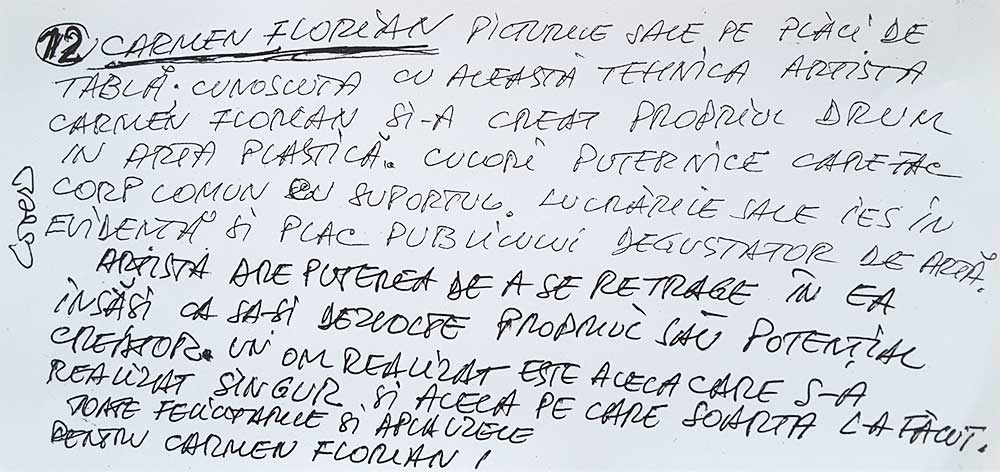 12 CARMEN FLORIAN PICTURILE SALE PE PLĂCI DE
TABLĂ. CUNOSCUTA CU ACEASTĂ TEHNICA ARTISTA
CARMEN FLORIAN SI-A CREAT PROPRIUL DRUM
IN ARTA PLASTICĂ. CULORI PUTERNICE CARE FAC
CORP COMUN CU SUPORTUL. LUCRĂRILE SALE IES ÎN
EVIDENTĂ SI PLAC PUBLICULUI DEGUSTATOR DE ARTĂ.
ARTISTA ARE PUTEREA DE A SE RETRAGE ÎN EA
ÎNSĂSI CA SA-SI DEZVOLTE PROPRIUL SĂU POTENȚIAL
CREATOR. UN OM REALIZAT ESTE ACELA CARE S-A
REALIZAT SINGUR SI ACELA PE CARE SOARTA L-A FĂCUT.
TOATE FELICITARILE SI APLAUZELE
PENTRU CARMEN FLORIAN!